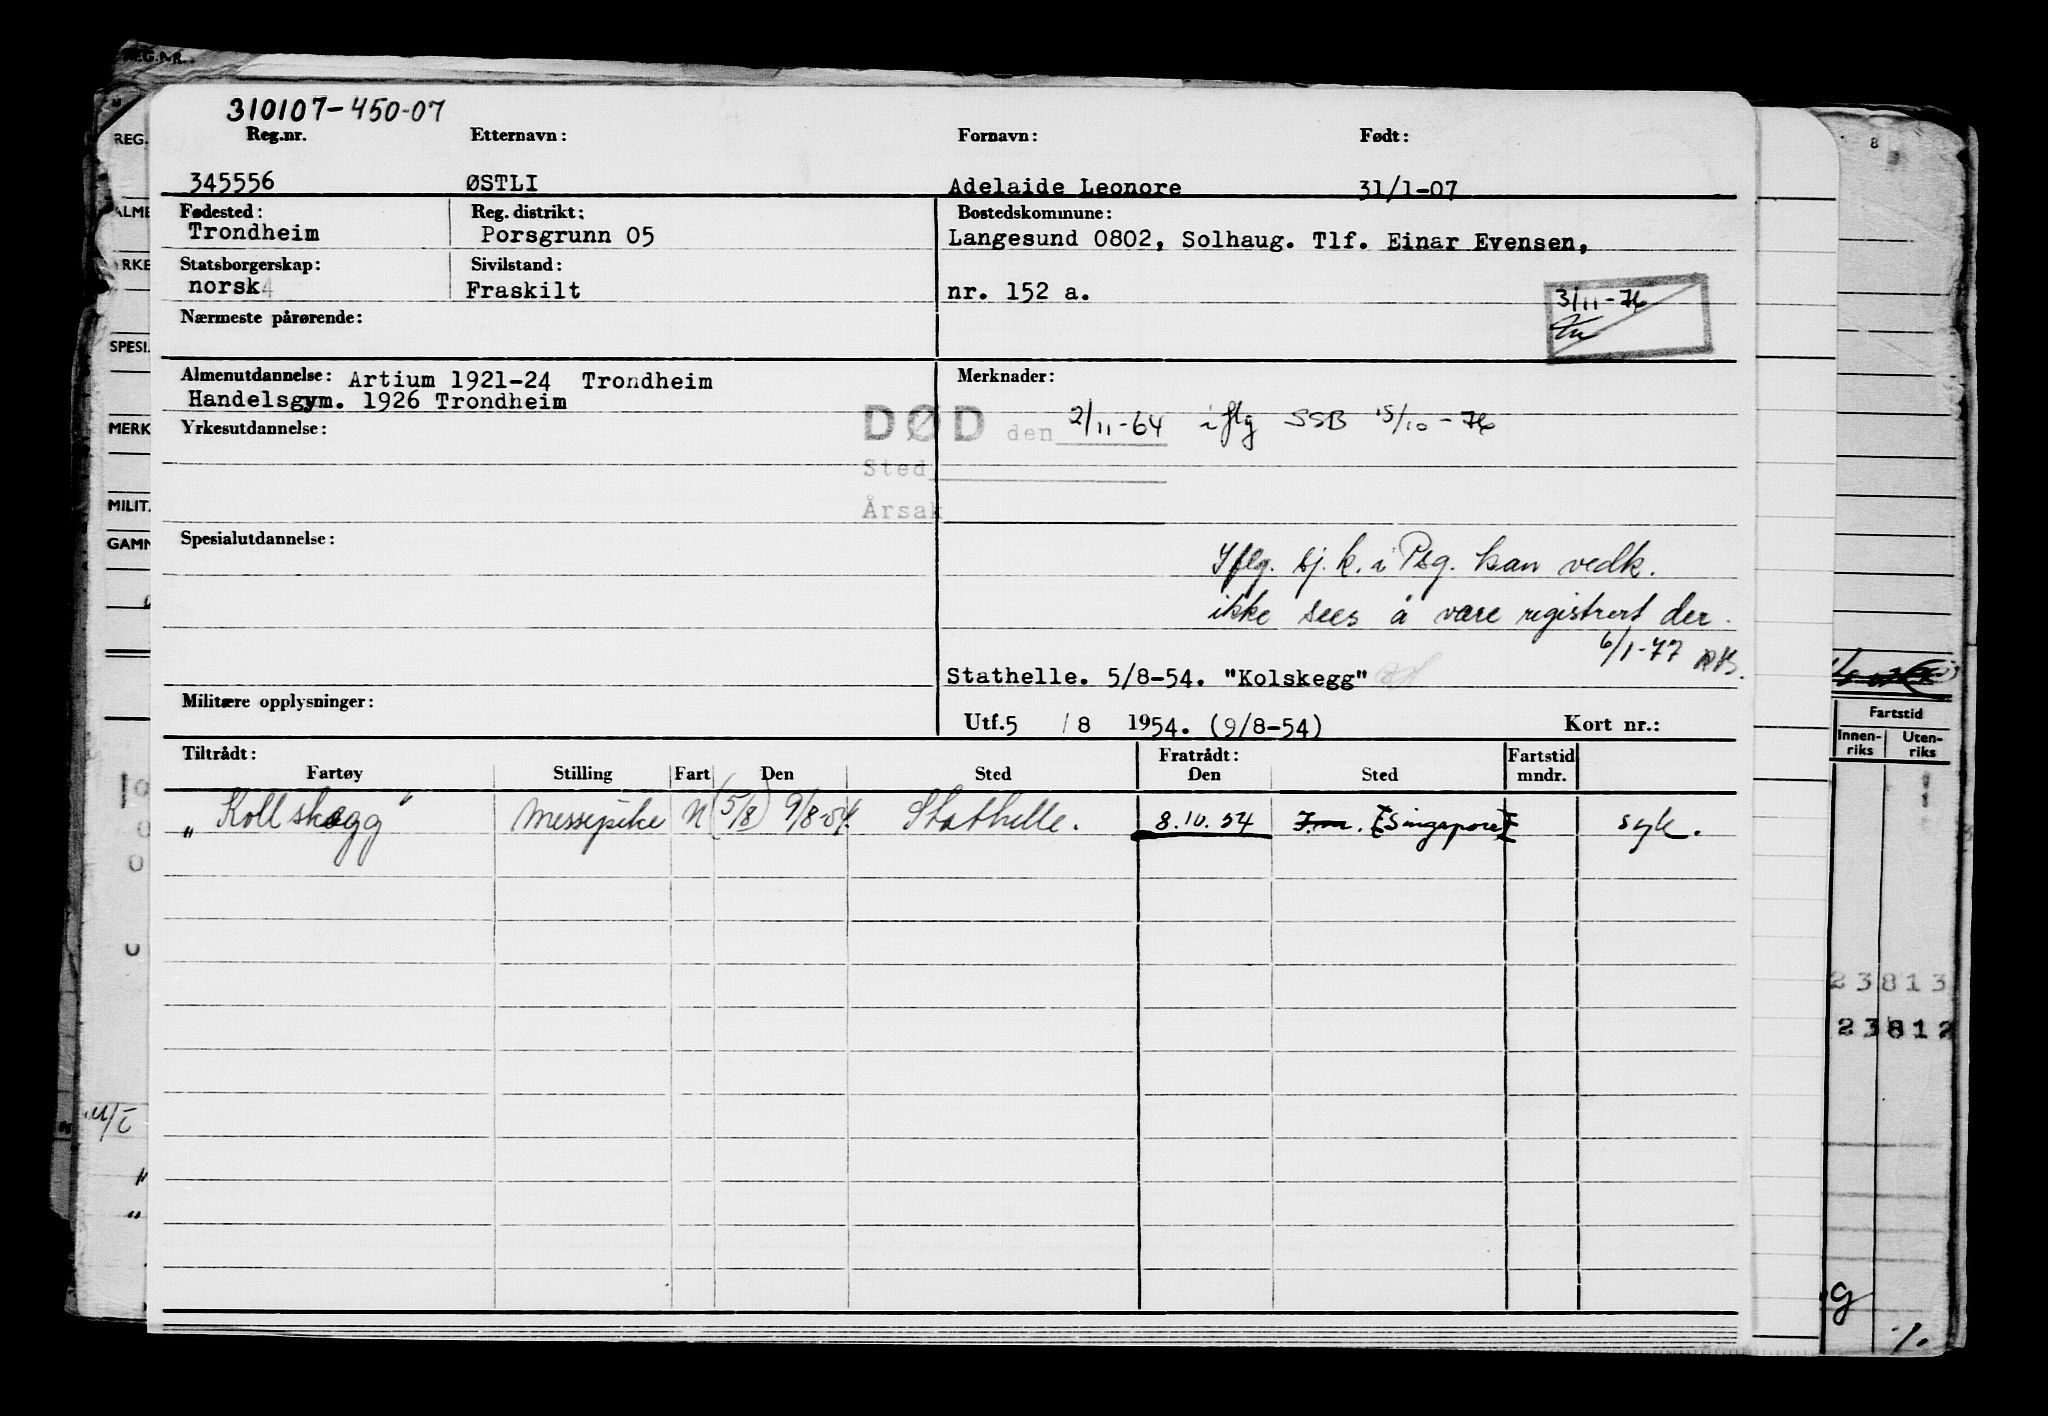 REG.NR.
310107-450-07
Reg.nr. Etternavn: Fornavn: Født:
345556 ØSTLI Adelaide Leonore 31/1-07
Fødested: Reg. distrikt: Bostedskommune:
Trondheim Porsgrunn 05 Langesund 0802, Solhaug. Tlf. Einar Evensen,
Statsborgerskap: Sivilstand:
norsk Fraskilt nr. 152 a.
3/11-76
Nærmeste pårørende:
Almenutdannelse: Artium 1921-24 Trondheim Merknader:
Handelsgym. 1926 Trondheim
DØD den 2/11-64 iflg SSB 15/10-76
Yrkesutdannelse:
Sted
Årsak
Spesialutdannelse:
Iflg. sj.k. i Psg. kan vedk.
ikke sees å være registrert der.
6/1-77
Stathelle. 5/8-54. "Kolskegg"
Militære opplysninger:
Utf.5 /8 1954. (9/8-54) Kort nr.:
Tiltrådt: Fratrådt: Fartstid
Fartøy Stilling Fart Den Sted Den Sted mndr.
"Kollskegg" Messepike N (5/8) 9/8-54. Stathelle. 8.10.54 [Singapore] syk.
REG.
SPESI.
MERK
MILIT.
GAMN
8
Fartstid
Innen- Uten-
riks riks
23813
23812
g